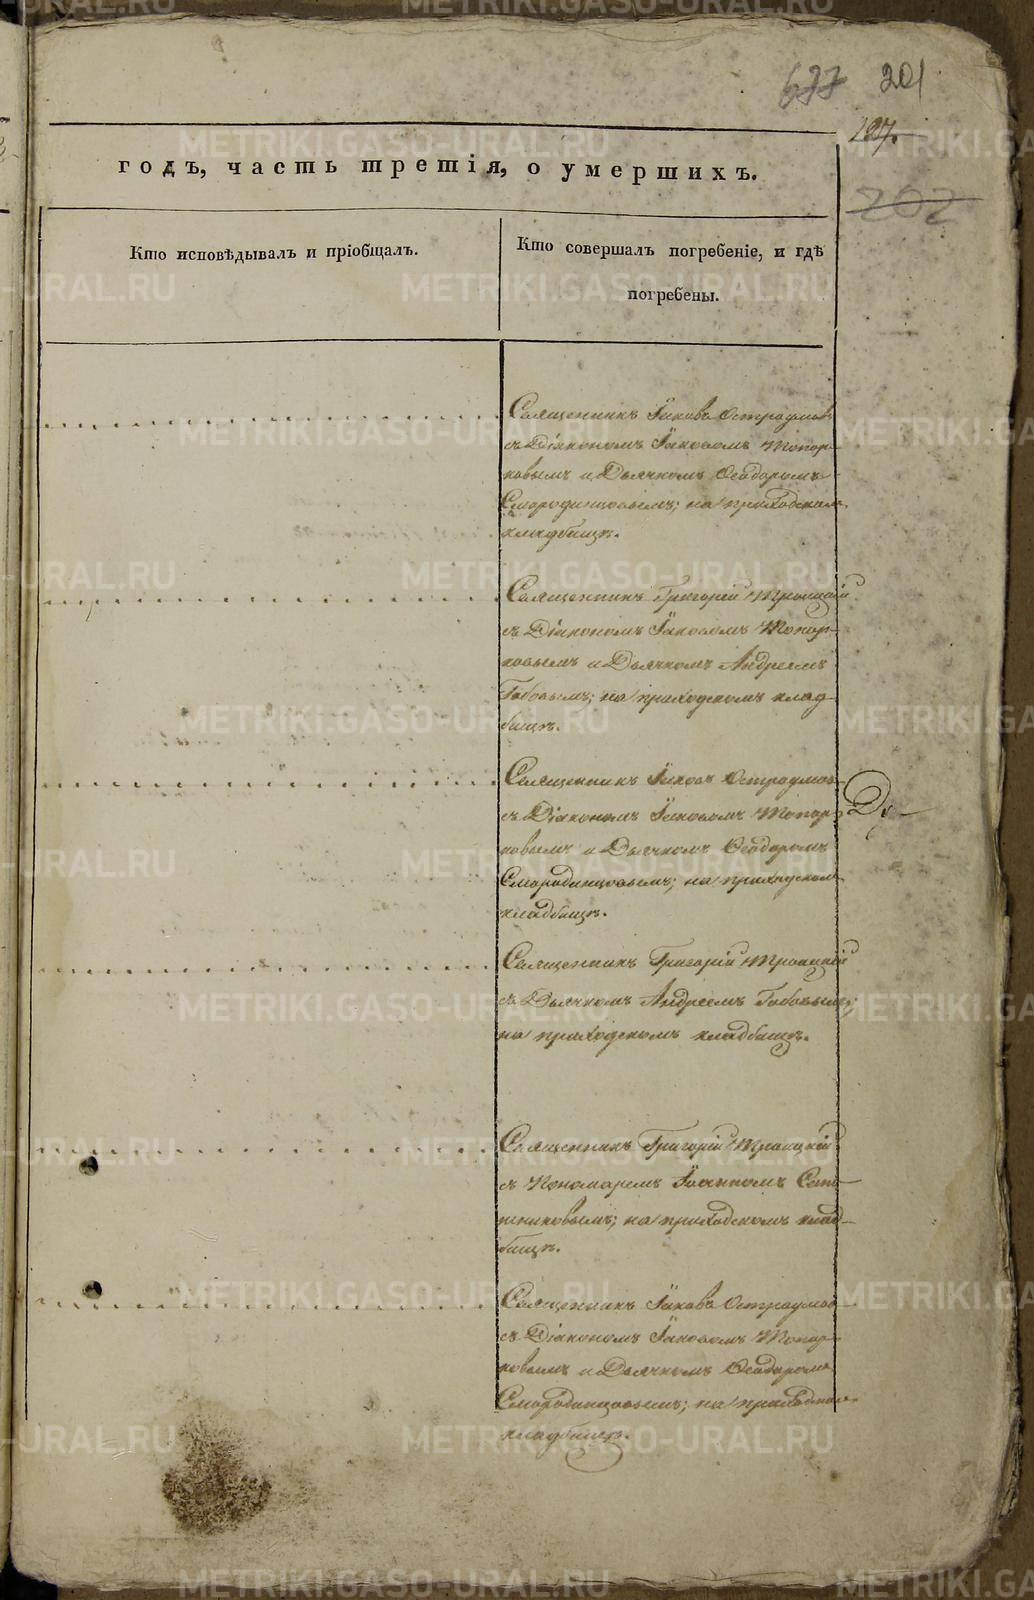 677 201
197.
202
годъ, часть третія, о умершихъ.
Кто исповѣдывалъ и пріобщалъ.
Кто совершалъ погребеніе, и гдѣ
погребены.
Священникъ Іаковъ Остроумов
съ Діакономъ Іаковомъ Топор-
ковымъ и Дьячкомъ Ѳеодоромъ
Смородинцовымъ; на приходском
кладбищѣ.
Священникъ Григорій Троицкій
съ Діакономъ Іаковомъ Топор-
ковымъ и Дьячкомъ Андреемъ
Бабовымъ; на приходскомъ клад-
бищѣ.
Священникъ Іаковъ Остроумов
съ Діакономъ Іаковомъ Топор-
Ду
ковымъ и Дьячкомъ Ѳеодоромъ
Смородинцовымъ; на приходском
кладбищѣ.
Священникъ Григорій Троицкій
съ Дьячкомъ Андреемъ Бабовымъ;
на приходскомъ кладбищѣ.
Священникъ Григорій Троицкій
съ Пономаремъ Іоанномъ
на приходскомъ клад-
бищѣ.
Священникъ Іаковъ Остроумов
съ Діакономъ Іаковомъ Топор-
ковымъ и Дьячкомъ Ѳеодоромъ
Смородинцовымъ; на приходском
кладбищѣ.
METRIKI.GASO-URAL.RU